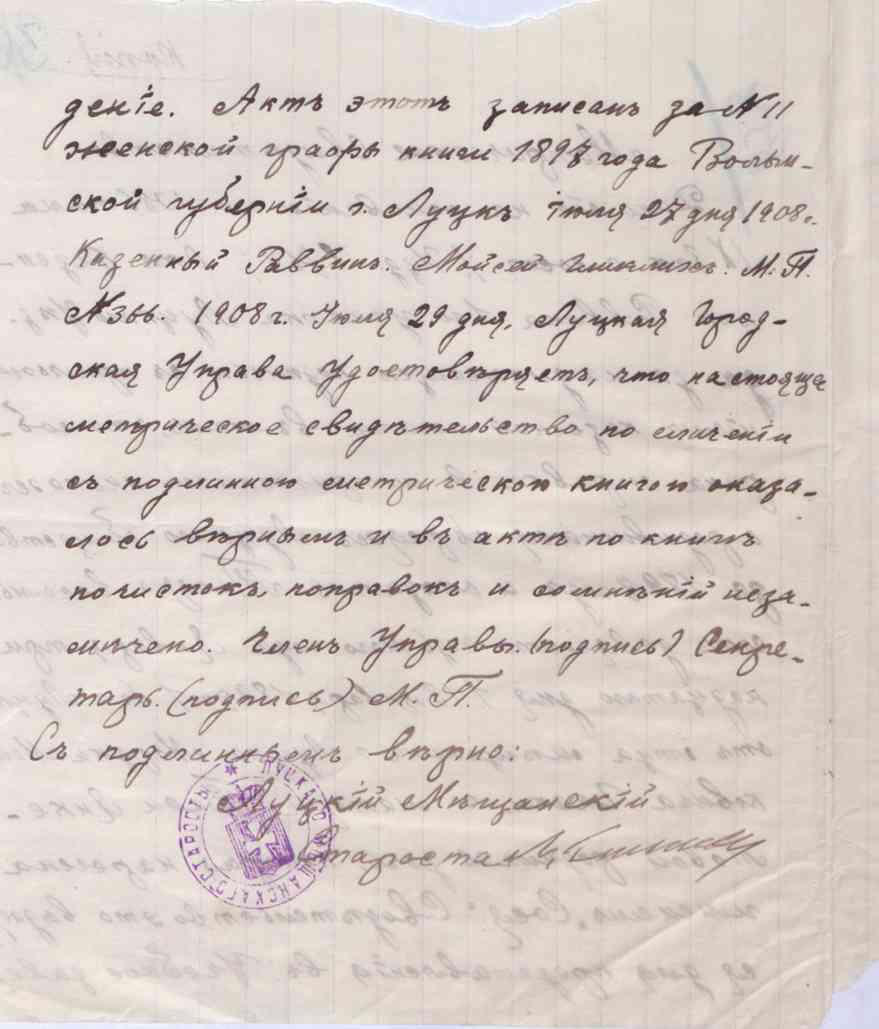 деніе. Актъ этотъ записанъ за № 11
женской графы книги 1897 года Волын-
ской губерніи г. Луцкъ іюля 27 дня 1908 г.
Казенный Раввинъ. Мойсей М. П.
№ 366. 1908 г. Іюля 29 дня, Луцкая Город-
ская Управа Удостовѣряетъ, что настояще
метрическое свидѣтельство по сличеніи
съ подлинною метрическою книгою оказа-
лось вѣрнымъ и въ актѣ по книгѣ
почистокъ, поправокъ и сомнѣній неза-
мѣчено. Членъ Управы. (подпись) Секре-
тарь. (подпись) М. П.
Съ подлиннымъ вѣрно:
Луцкій Мѣщанскій
Староста
ЛУЦКАГО МѢЩАНСКАГО СТАРОСТЫ